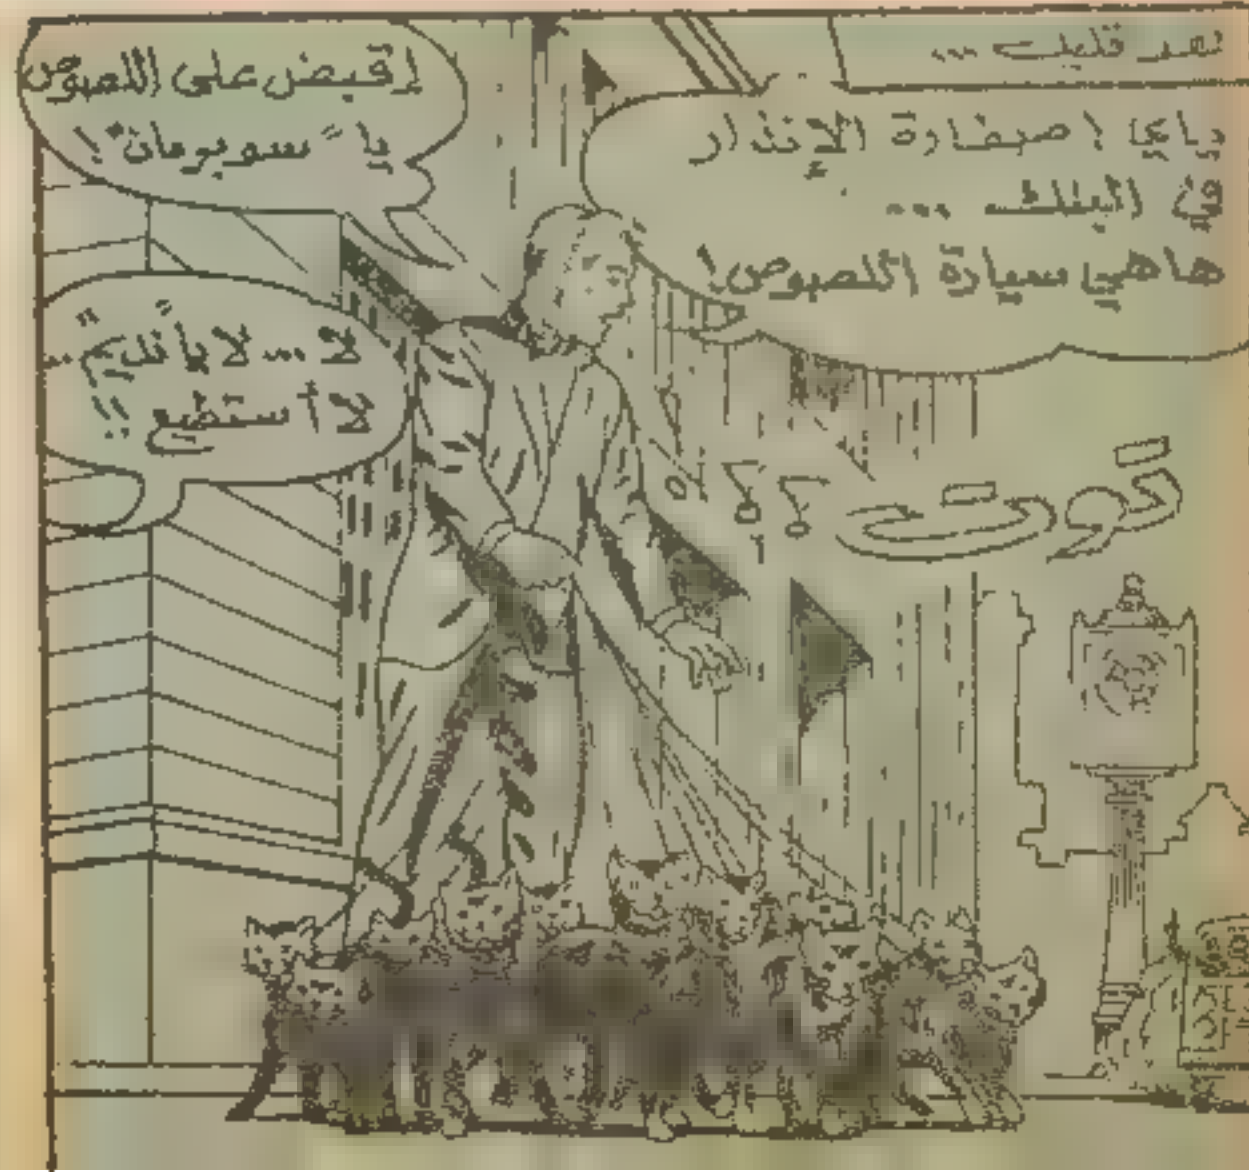 بعد قليل ...
ياي ! صفارة الإنذار
في البنك ...
هاهي سيارة اللصوص !
إقبض على اللصوص
يا "سوبرمان" !
لا ... لا يا نديم ..
لا أستطيع !!
توت ؟ ؟ ه